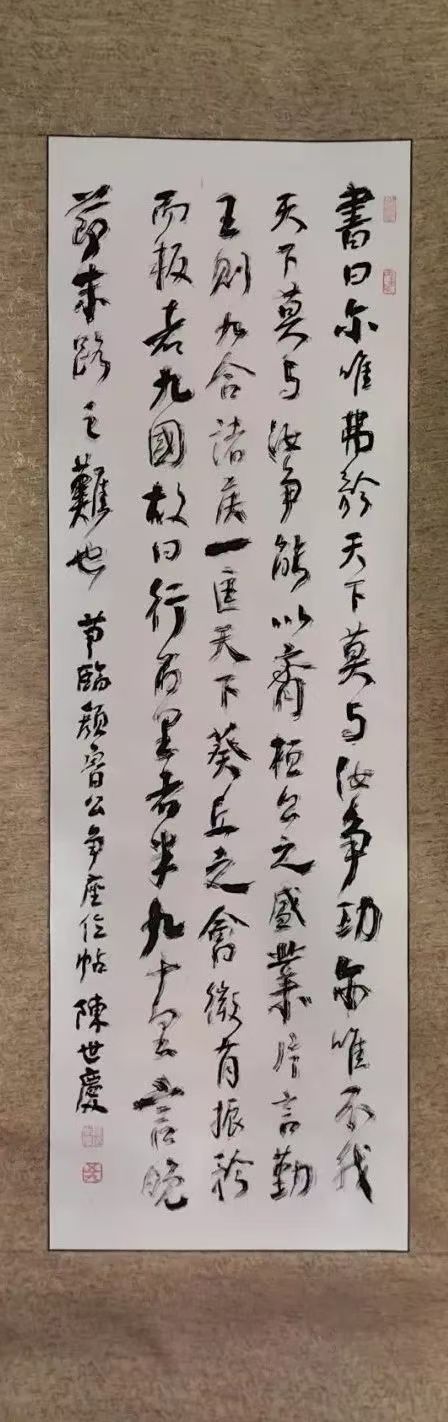 書曰尔唯弗矜天下莫与汝争功尔唯不我
天下莫与汝争能以齊桓公之盛業片言勤
王則九合諸侯一匡天下葵丘之會微有振矜
而叛者九國故曰行百里者半九十里言晚
節末路之難也 节臨顔魯公争座位帖 陳世慶